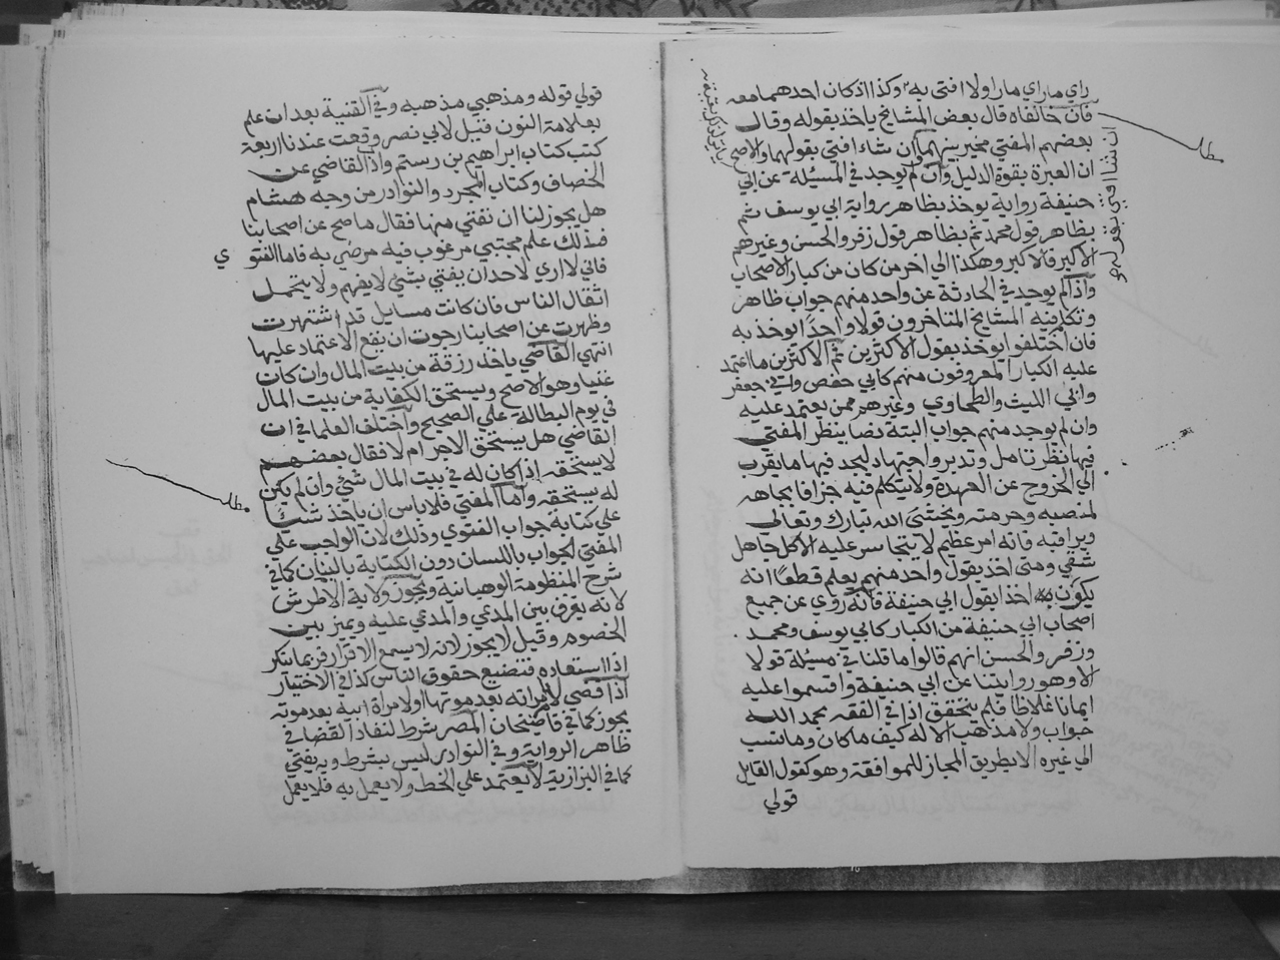 راي ماراي مارا ولا افتى به وكذا اذ كان احدهما معه
فان خالفاه قال بعض المشايخ ياخذ بقوله وقال
بعضهم المفتي مخير بينهما ان شاء افتي بقولهما والاصح
ان العبرة بقوة الدليل وان لم يوجد في المسئلة عن ابي
حنيفة رواية يوخذ بظاهر رواية ابي يوسف ثم
بظاهر قول محمد ثم بظاهر قول زفر والحسن وغيرهم
الاكبر فالاكبر وهكذا الي اخر من كان من كبار الاصحاب
واذا لم يوجد في الحادثة عن واحد منهم جواب ظاهر
وتكلم فيه المشايخ المتاخرون قولا واحدا يوخذ به
فان اختلفوا يوخذ بقول الاكثرين ثم الاكثرين ما اعتمد
عليه الكبار المعروفون منهم كابي حفص وابي جعفر
وابي الليث والطحاوي وغيرهم ممن يعتمد عليه
وان لم يوجد منهم جواب البتة نصا ينظر المفتي
فيها نظر تامل وتدبر واجتهاد ليجد فيها ما يقرب
الي الخروج عن العهدة ولا يتكلم فيه جزافا بجاهه
لمنصبه وحرمته ويخشى الله تبارك وتعالي
ويراقبه فانه امر عظيم لا يتجاسر عليه الا كل جاهل
شقي ومتى اخذ بقول واحد منهم يعلم قطعا انه
يكون به اخذا بقول ابي حنيفة فانه روي عن جميع
اصحاب ابي حنيفة من الكبار كابي يوسف ومحمد
وزفر والحسن انهم قالوا ما قلنا في مسئلة قولا
الا وهو روايتنا عن ابي حنيفة واقسموا عليه
ايمانا غلاظا فلم يتحقق اذا في الفقه بحمد الله
جواب ولا مذهب الا له كيف ما كان وما نسب
الي غيره الا بطريق المجاز للموافقة وهو كقول القايل
قولي
ان شا افتى بقوله و
قولي قوله ومذهبي مذهبه وفي القنية بعد ان علم
بعلامة النون قيل لابي نصر وقعت عندنا اربعة
كتب كتاب ابراهيم بن رستم واد القاضي عن
الخصاف وكتاب المجرد والنوادر من وجه هشام
هل يجوز لنا ان نفتي منها فقال ما صح عن اصحابنا
فذلك علم مجتبي مرغوب فيه مرضي به فاما الفتوي
فاني لا اري لاحد ان يفتي بشئ لا يفهم ولا يتحمل
اثقال الناس فان كانت مسايل قد اشتهرت
وظهرت عن اصحابنا رجوت ان يقع الاعتماد عليها
انتهي القاضي ياخذ رزقة من بيت المال وان كان
غنيا وهو الاصح ويستحق الكفاية من بيت المال
في يوم البطالة علي الصحيح واختلف العلما في ان
القاضي هل يستحق الاجر ام لا فقال بعضهم
لا يستحقه اذ كان له في بيت المال شئ وان لم يكن
له يستحقه واما المفتي فلا باس ان ياخذ شيئا
علي كتابة جواب الفتوي وذلك لان الواجب علي
المفتي الجواب باللسان دون الكتابة بالبنان كما في
شرح المنظومة الوهبانية ويجوز ولاية الاطرش
لانه يفرق بين المدعي والمدعي عليه ويميز بين
الخصوم وقيل لا يجوز لانه لا يسمع الاقرار فربما ينكر
اذا استعاده فتضيع حقوق الناس كذا في الاختيار
اذا قضي لامراته بعد موتها او لامراة ابيه بعد موته
يجوز كما في قاضيخان المصر شرط لنفاذ القضا في
ظاهر الرواية وفي النوادر ليس بشرط وبه يفتي
كما في البزازية لا يعتمد علي الخط ولا يعمل به فلا يعمل